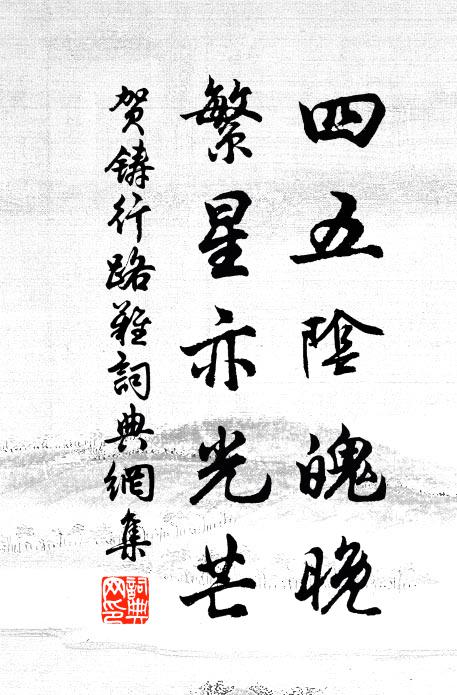 四五陰魄晚
繁星亦光芒
贺鑄行路难詞典網集
詞典网印